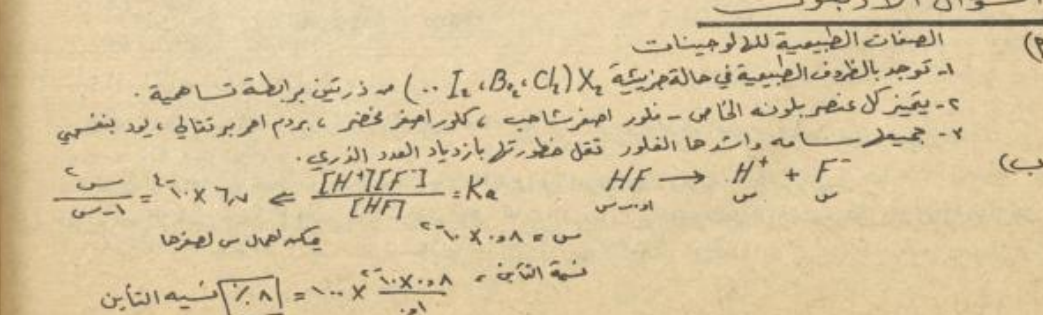 (P
الصفات الطبيعية للهالوجينات
١- توجد بالظروف الطبيعية في حالة جزيئية X₂ (Cl₂، Br₂، I₂ ..) من ذرتين برابطة تساهمية .
٢- يتميز كل عنصر بلونه الخاص - فلور اصفر شاحب ، كلور اصفر مخضر ، بروم احمر برتقالي ، يود بنفسجي
٣- جميعها سامه واشدها الفلور تقل خطورتها بازدياد العدد الذري .
ب) HF → H⁺ + F⁻ Ka = [H⁺][F⁻] / [HF] ⇐ ٦,٧ × ١٠⁻٤ = س² / ٠,١ - س
٠,١ - س س س
س = ٠,٨ × ١٠⁻٢ يمكن اهمال س لصغرها
نسبة التأين = ٠,٨ × ١٠⁻٢ / ٠,١ × ١٠٠ = ٨ ٪ نسبة التأين